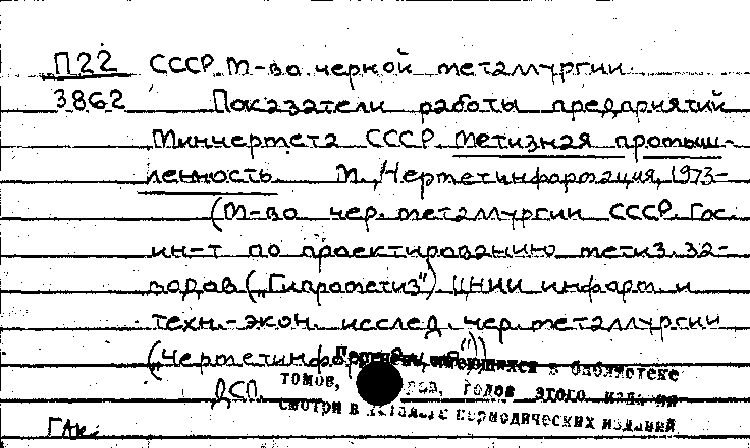 П22 СССР. М-во черной металлургии.
3862 Показатели работы предприятий
Минчермета СССР. Метизная промыш-
ленность. М., Черметинформация, 1973-
(М-во чер. металлургии СССР. Гос.
ин-т по проектированию метиз. за-
водов („Гипрометиз“) ЦНИИ информ. и
техн.-экон. исслед. чер. металлургии
(„Черметинформация“))
имеющихся в библиотеке
ДСП. томов, годов этого издания
смотри в каталоге периодических изданий
ГАК.